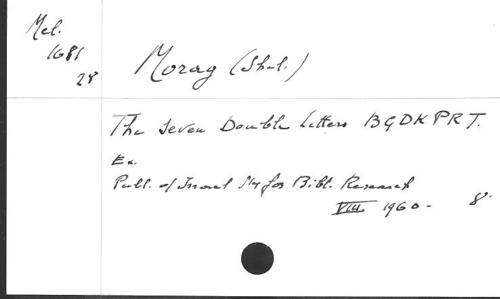 Mel.
1681
28
Morag (Shel.)
The seven Double Letters BGDKPRT.
Ex.
Publ. of Israel Soc. for Bibl. Research
VIII 1960. 8°